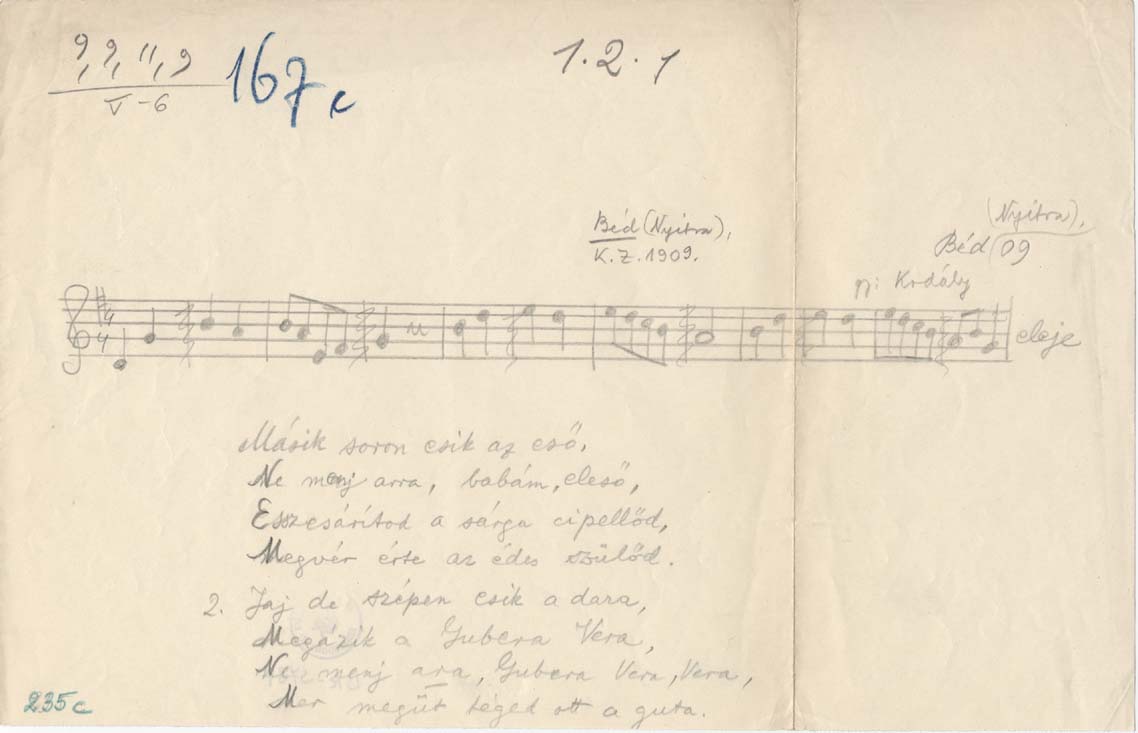 9, 9, 11, 9
V-6
167c
1.2.1
Béd (Nyitra),
K.Z. 1909.
(Nyitra),
Béd 09
Kodály
4
4
eleje
Másik soron esik az eső,
Ne menj arra, babám, eleső,
Esszesárítod a sárga cipellőd,
Megvér érte az édes szülőd.
2. Jaj de szépen esik a dara,
Megázik a Gubera Vera,
Ne menj ara, Gubera Vera, Vera,
Mer megüt téged ott a guta.
235c